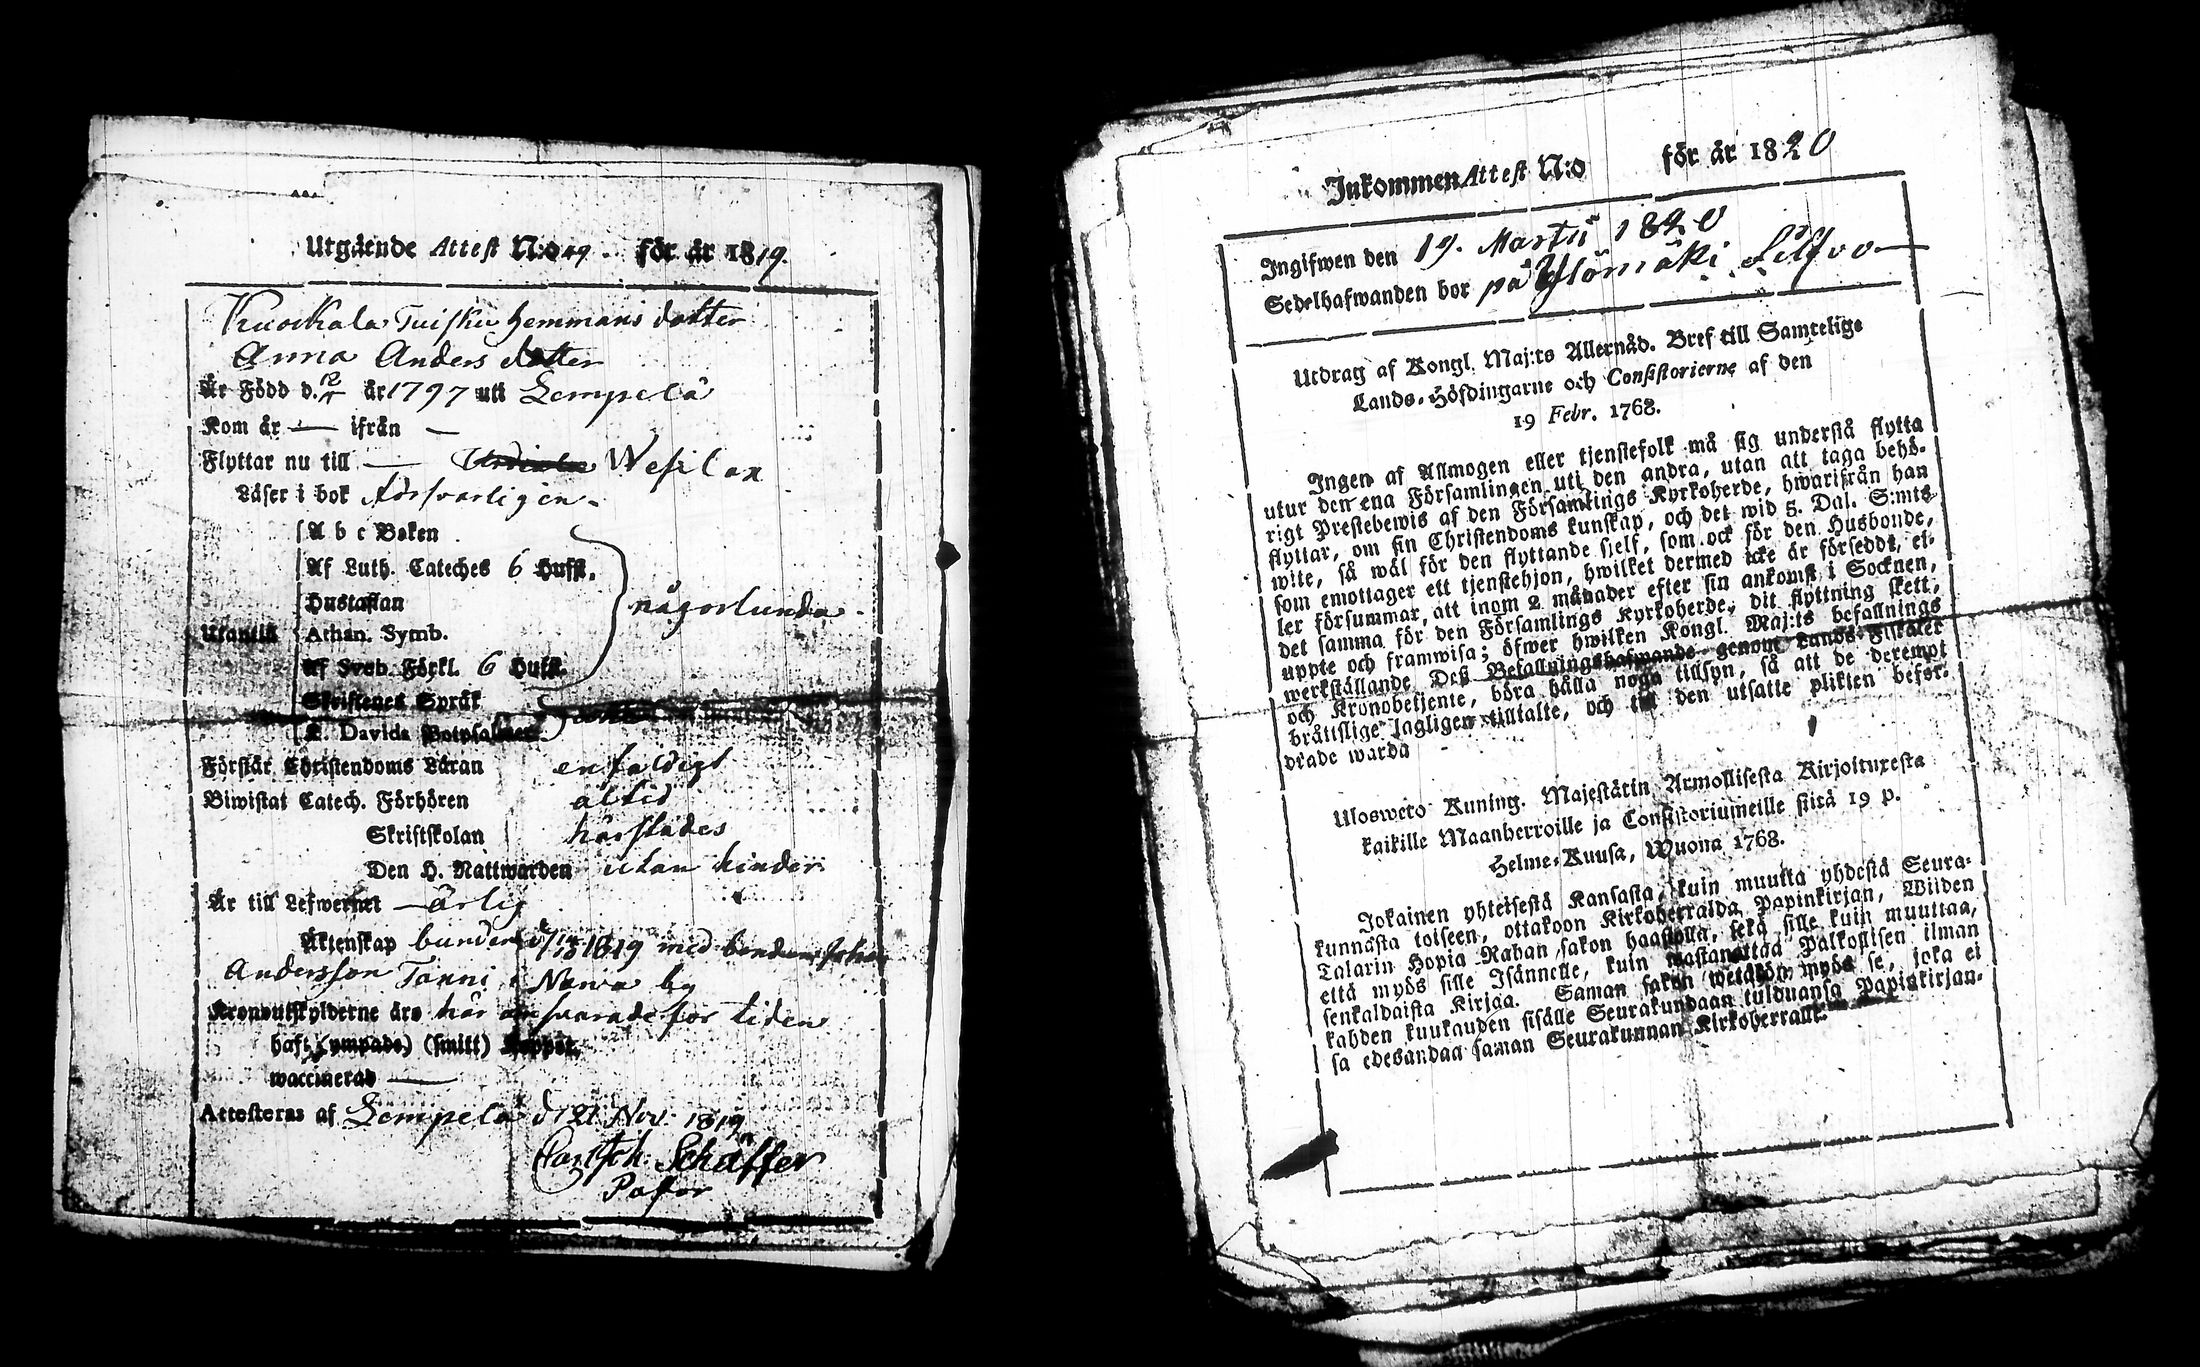 Utgående Attest N:o 49 för år 1819.
Kuockala Tuisku hemmans dotter
Anna Anders dotter
Är Född d. 12/ år 1797 uti Lempelä
Kom år — ifrån —
Flyttar nu till — Wesilax
Läser i bok försvarligen.
A b c Boken
Af Luth. Cateches 6 Hufst.
Hustaflan
någorlunda
Utantill
Athan. Symb.
Af Sveb. Förkl. 6 Hufst.
Skriftenes Språk
K. Davids Botpsalmer
Förstår Christendoms Läran enfaldigt
Biwistat Catech. Förhören altid
Skriftskolan härstädes
Den H. Nattwarden utan hinder
Är till Lefwernet — ärlig
Äktenskap bunden 1819 med
Andersson Tanni i Narva by
Kronoutskylderne äro här ansvarade för tiden
haft (ympade) (smitt) Koppor.
waccinerad —
Attesteras af Lempelä d 21 Nov. 1819
Schäffer
Pastor
Inkommen Attest N:o för år 1820
Ingifwen den 19. Martii 1820
Sedelhafwanden bor på Ylömäki
Utdrag af Kongl. Maj:ts Allernåd. Bref till Samtelige
Lands-Höfdingarne och Consistorierne af den
19 Febr. 1768.
Ingen af Allmogen eller tjenstefolk må sig understå flytta
utur den ena Församlingen uti den andra, utan att taga behö-
rigt Prestebewis af den Församlings Kyrkoherde, hwarifrån han
flyttar, om sin Christendoms kunskap, och det wid 5. Dal. S:mts
wite, så wäl för den flyttande sjelf, som ock för den Husbonde,
som emottager ett tjenstehjon, hwilket dermed icke är försedt, el-
ler försummar, att inom 2 månader efter sin ankomst i Socknen,
det samma för den Församlings Kyrkoherde, dit flyttning skett,
uppte och framwisa; öfwer hwilken Kongl. Maj:ts befallnings
werkställande Deß Befallningshafwande genom Lands-Fiskaler
och Kronobetjente, böra hålla noga tillsyn, så att de deremot
bråttslige lagligen tilltalte, och till den utsatte plikten befor-
drade warda
Ulosweto Kuning. Majestätin Armollisesta Kirjoituxesta
kaikille Maanherroille ja Consistoriumeille siitä 19 p.
Helme-Kuusa, Wuona 1768.
Jokainen yhteisestä Kansasta, kuin muutta yhdestä Seura-
kunnasta toiseen, ottakoon Kirkoherralda Papinkirjan, Wiiden
Talarin Hopia Rahan sakon haastolla, sekä sille kuin muuttaa,
että myös sille Isännelle, kuin wastanottaa Palkollisen ilman
senkaldaista Kirjaa. Saman sakon wetäköön myös se, joka ei
kahden kuukauden sisälle Seurakundaan tulduansa Papinkirjan-
sa edesandaa saman Seurakunnan Kirkoherralle.